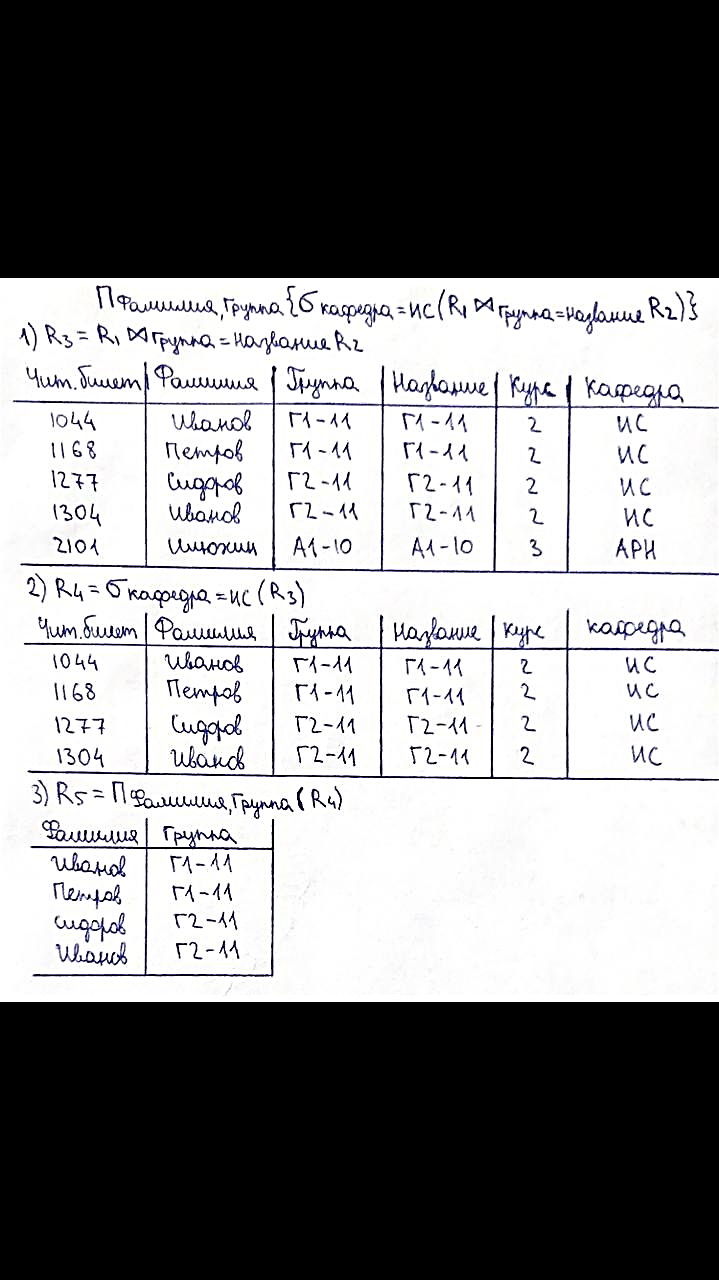 П Фамилия, Группа {σ кафедра = ИС (R1 ⋈ Группа = Название R2)}
1) R3 = R1 ⋈ Группа = Название R2
Чит. билет Фамилия Группа Название Курс Кафедра
1044 Иванов Г1-11 Г1-11 2 ИС
1168 Петров Г1-11 Г1-11 2 ИС
1277 Сидоров Г2-11 Г2-11 2 ИС
1304 Иванов Г2-11 Г2-11 2 ИС
2101 А1-10 А1-10 3 АРН
2) R4 = σ кафедра = ИС (R3)
Чит. билет Фамилия Группа Название Курс кафедра
1044 Иванов Г1-11 Г1-11 2 ИС
1168 Петров Г1-11 Г1-11 2 ИС
1277 Сидоров Г2-11 Г2-11 2 ИС
1304 Иванов Г2-11 Г2-11 2 ИС
3) R5 = П Фамилия, Группа (R4)
Фамилия Группа
Иванов Г1-11
Петров Г1-11
Сидоров Г2-11
Иванов Г2-11